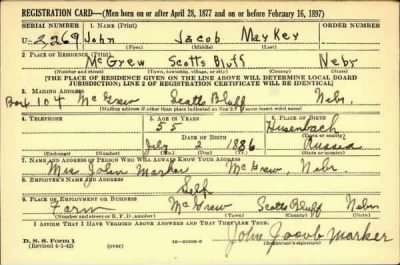 REGISTRATION CARD—(Men born on or after April 28, 1877 and on or before February 16, 1897)
SERIAL NUMBER 1. NAME (Print)
U- 2269 John Jacob Marker
(First) (Middle) (Last)
2. PLACE OF RESIDENCE (Print)
McGrew Scotts Bluff Nebr
(Number and street) (Town, township, village, or city) (County) (State)
[THE PLACE OF RESIDENCE GIVEN ON THE LINE ABOVE WILL DETERMINE LOCAL BOARD
JURISDICTION; LINE 2 OF REGISTRATION CERTIFICATE WILL BE IDENTICAL]
3. MAILING ADDRESS
Box 104 McGrew Scotts Bluff Nebr.
[Mailing address if other than place indicated on line 2. If same insert word same]
4. TELEPHONE 5. AGE IN YEARS 6. PLACE OF BIRTH
55
DATE OF BIRTH
(Town or county)
July 2 1886 Russia
(Mo.) (Day) (Yr.) (State or country)
7. NAME AND ADDRESS OF PERSON WHO WILL ALWAYS KNOW YOUR ADDRESS
Mrs John Marker McGrew, Nebr.
8. EMPLOYER'S NAME AND ADDRESS
Self
9. PLACE OF EMPLOYMENT OR BUSINESS
Farm McGrew Scotts Bluff Nebr
(Number and street or R. F. D. number) (Town) (County) (State)
I AFFIRM THAT I HAVE VERIFIED ABOVE ANSWERS AND THAT THEY ARE TRUE.
D. S. S. Form 1
(Revised 4-1-42) (over)
John Jacob Marker